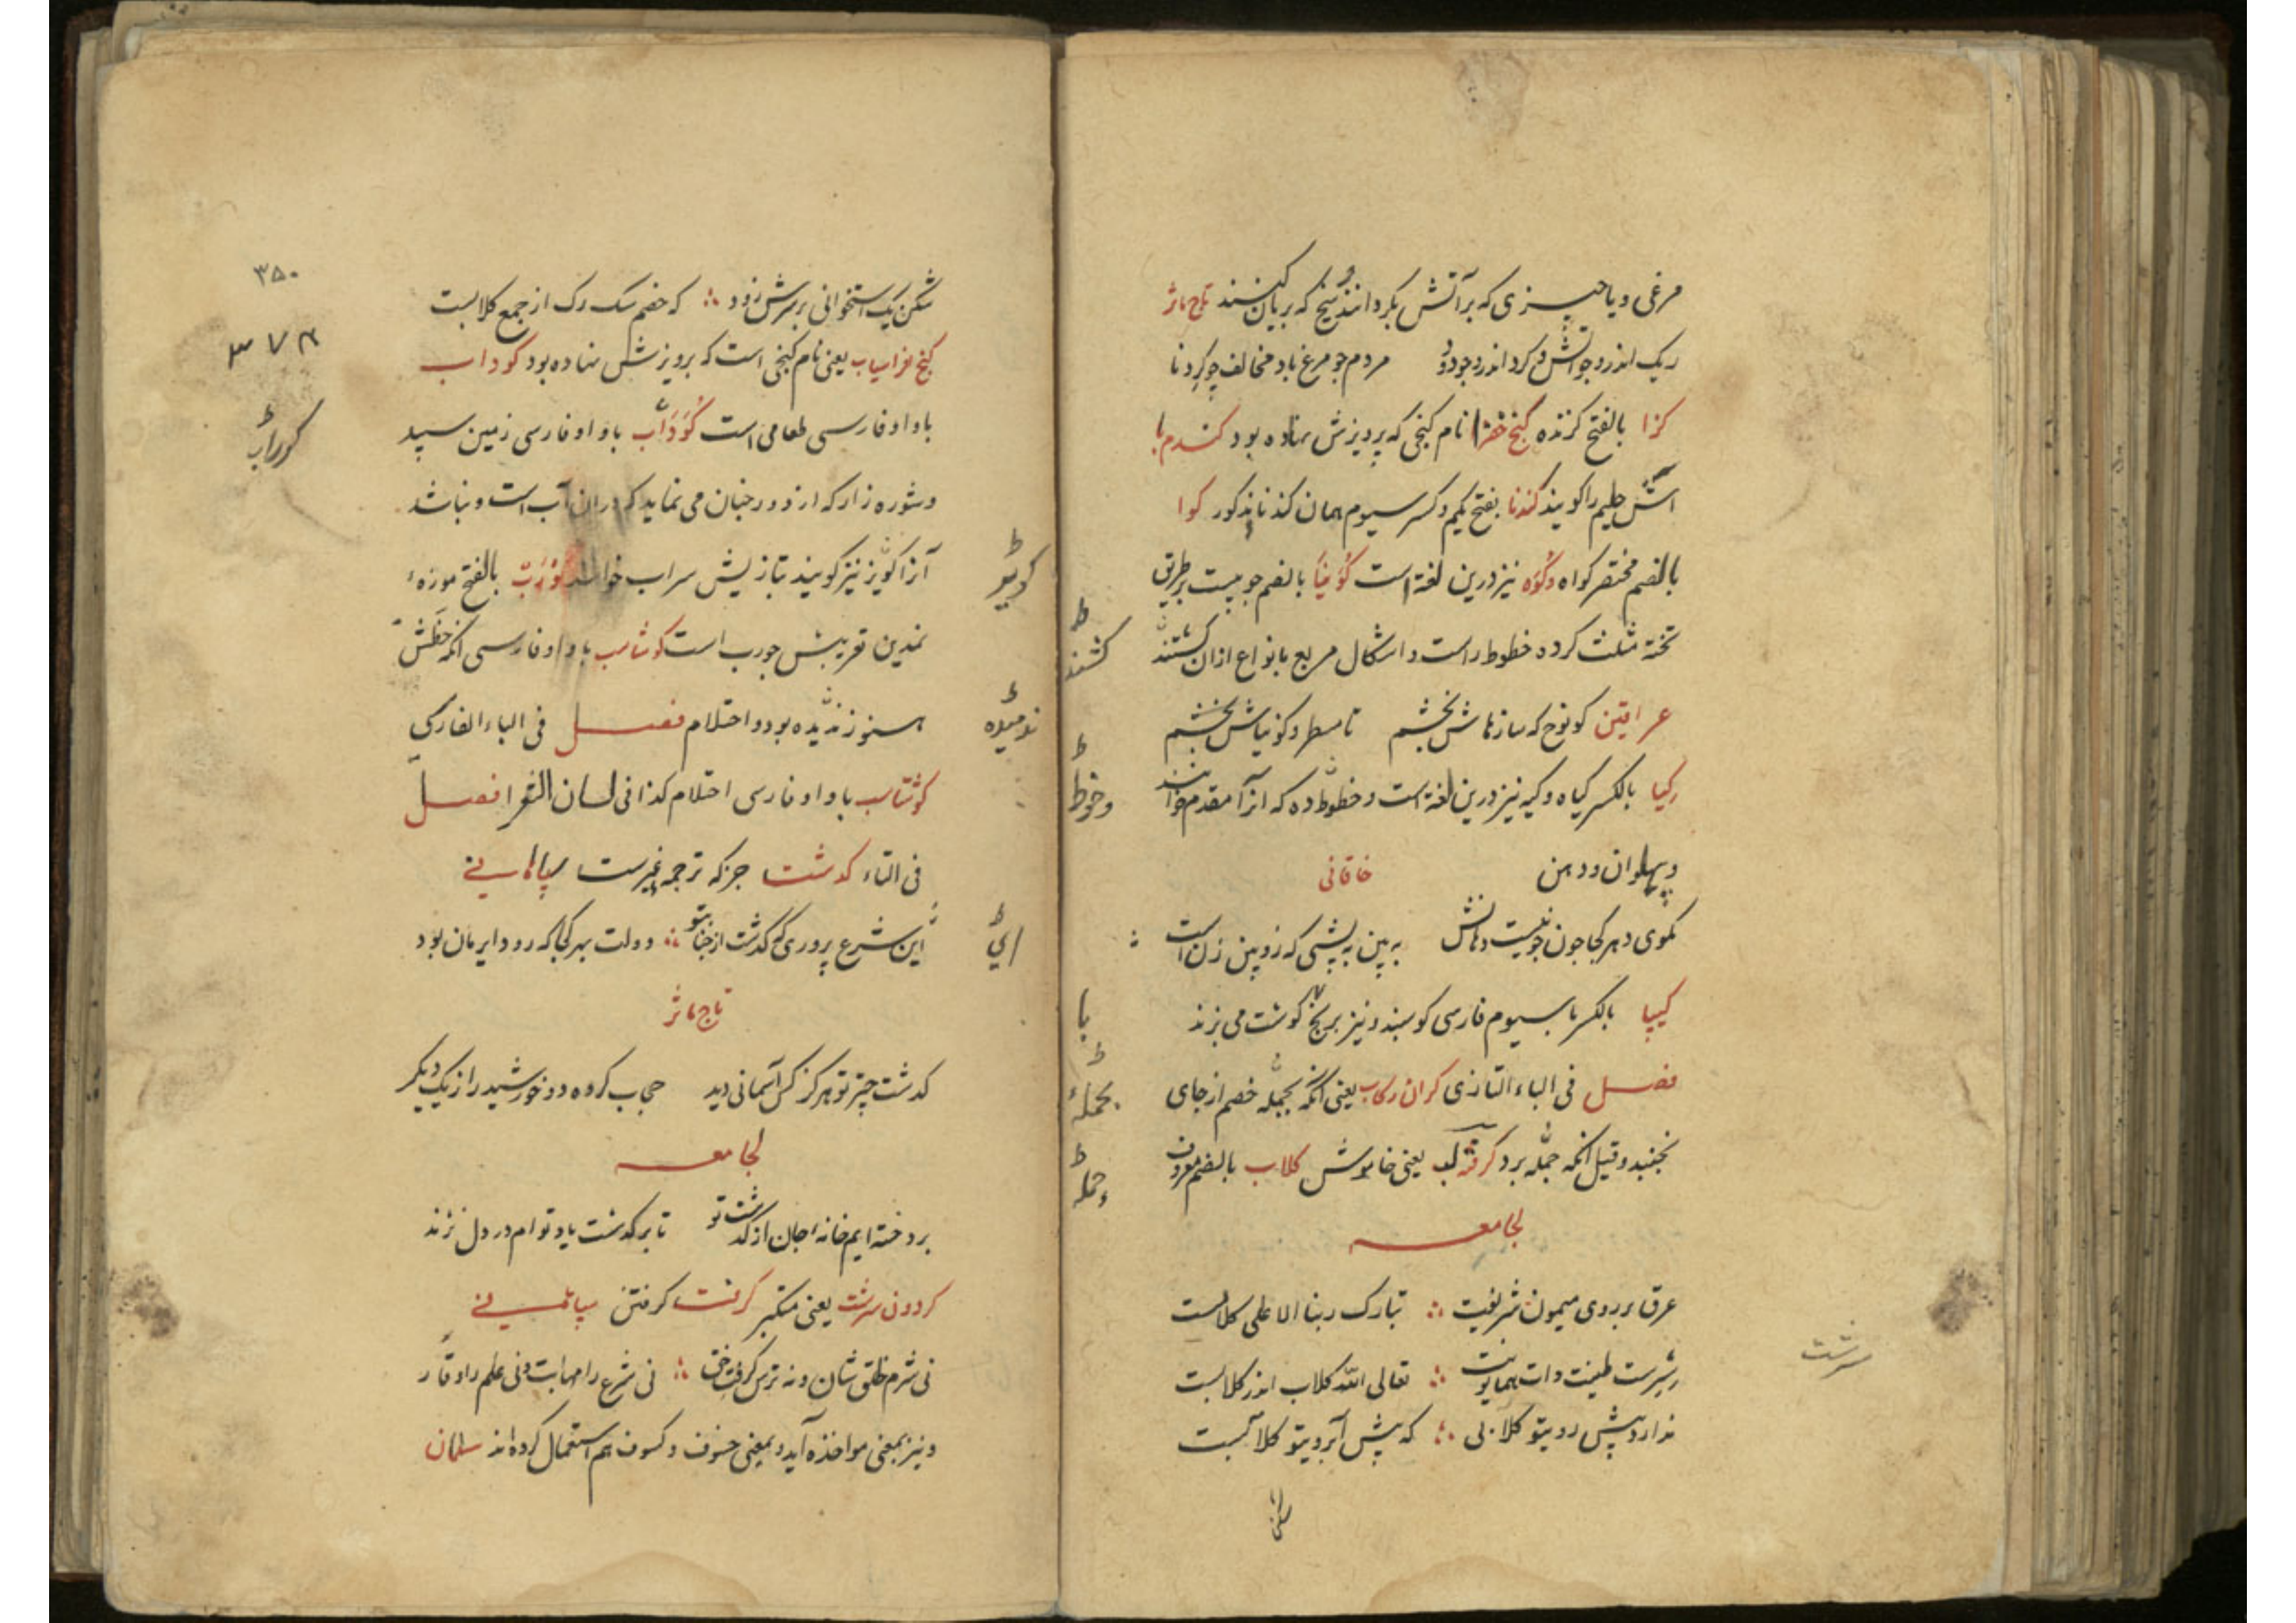 مرغی و یا چیزی که بر آتش بگردانند و سیخ که بریان کنند تاج ماثر
ریک اندرو جو آتش و کرد اندرو جو دود مردم جو مرغ باد مخالف جو کردنا
کزا بالفتح کزنده کنج خضرا نام کنجی که پرویزش نهاده بود کندم با
آش حلیم را کویند کندنا بفتح یکم و کسر سیوم همان کندنا مذکور کوا
بالضم مختصر کواه و کوه نیز درین لغة است کونیا بالضم جوبیست بر طریق
تخته مثلث کرده خطوط راست و اشکال مربع بانواع ازان کشند
کشند
عراقین کو نوح که سازهاش بخشم تا مسطر و کونیاش بخشم
کیا بالکسر کیاه و کیه نیز درین لغة است و خطوط ده که آنرا مقدم خوانند
و خوط
و پهلوان و دهن خاقانی
به بین به پشمی که زوبین زن است
کیپا بالکسر با سیوم فارسی کوسبند و نیز برنج کوشت می بزند
با
فصل فی الباء التازی کران رکاب یعنی آنکه بحمله خصم از جای
بحمله
نجنبد و قیل آنکه حمله برد کرفته لب یعنی خاموش کلاب بالضم معروف
حمله
لجامعه
عرق بر روی میمون شریفت تبارک ربنا الاعلی کلابست
سرشت
سرشت طینت ذات همایونت تعالی الله کلاب اندر کلابست
ندارد پیش روی تو کلابی که پیش آبروی تو کلابست
۳۵۰
۳۷۴
شکن یک استخوانی بر سرش زود که خصم سک رک از جمع کلابست
کنج افراسیاب یعنی نام کنجی است که پرویزش نهاده بود کوداب
با واو فارسی طعامی است کوراب با واو فارسی زمین سپید
کوراب
و شوره زار که از دور جنان می نماید که دران آب است و نباشد
آنرا کویر نیز کویند بتازیش سراب خوانند کورب بالفتح موزهٔ
کویر
نمدین تعریبش جورب است کوشاسب با واو فارسی آنکه خطش
هنوز ندمیده بود و احتلام فصل فی الباء الفارسی
ندمیده
کوشتاسب با واو فارسی احتلام کذا فی لسان الشعرا فصل
فی التاء کذشت جز که ترجمه غیرست سپاهانی
این شرع پروری که کذشت از جناب تو دولت بهر کجا که رود ایرمان بود
ای
تاج ماثر
کذشت چتر تو هرکز کس آسمانی دید حجاب کرده دو خورشید را ز یک دیکر
لجامعه
برد خسته ایم خانهٔ جان از کذشت تو تا بر کذشت یاد تو ام در دل نژند
کردون سرشت یعنی متکبر کرفت کرفتن
نی شرم خلق شان و نه ترس کرفت حق نی شرع را مهابت و نی علم را وقار
و نیز بمعنی مواخذه آید و بمعنی خسوف و کسوف هم استعمال کرده اند سلمان